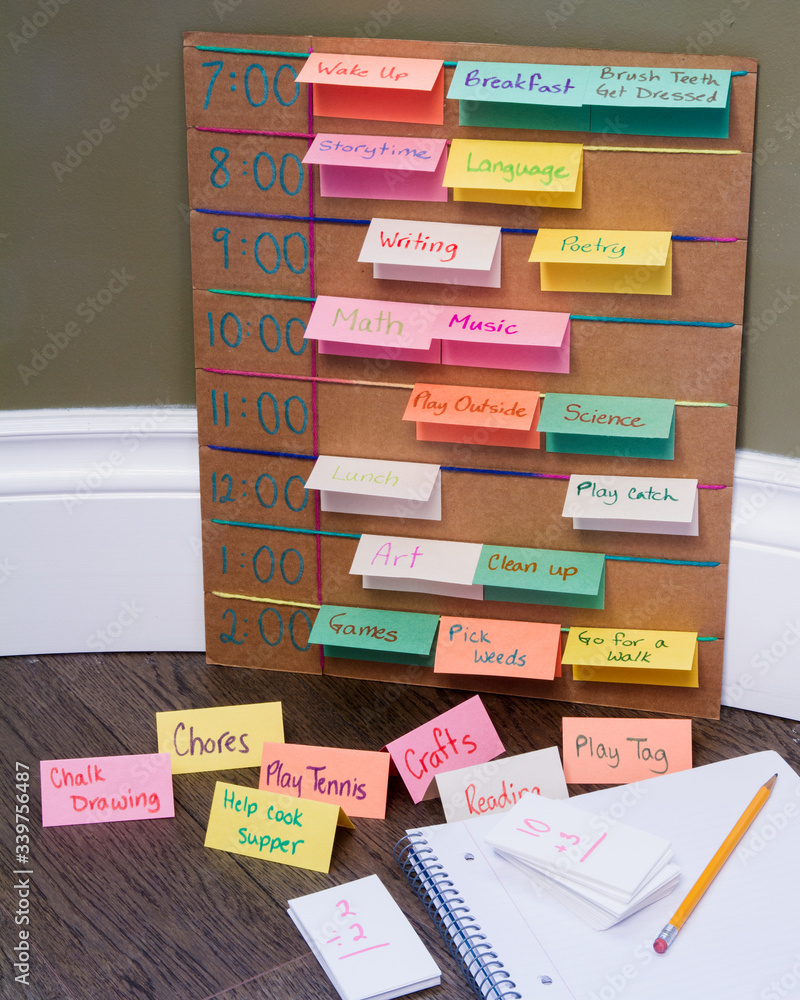 7:00 Wake Up Breakfast Brush Teeth
Get Dressed
8:00 Storytime Language
9:00 Writing Poetry
10:00 Math Music
11:00 Play Outside Science
12:00 Lunch Play catch
1:00 Art Clean up
2:00 Games Pick
Weeds
Go for a
walk
Chores
Crafts
Play Tag
Chalk
Drawing
Play Tennis
Reading
Help cook
supper
10
+3
2
-2
Adobe Stock
#339756487